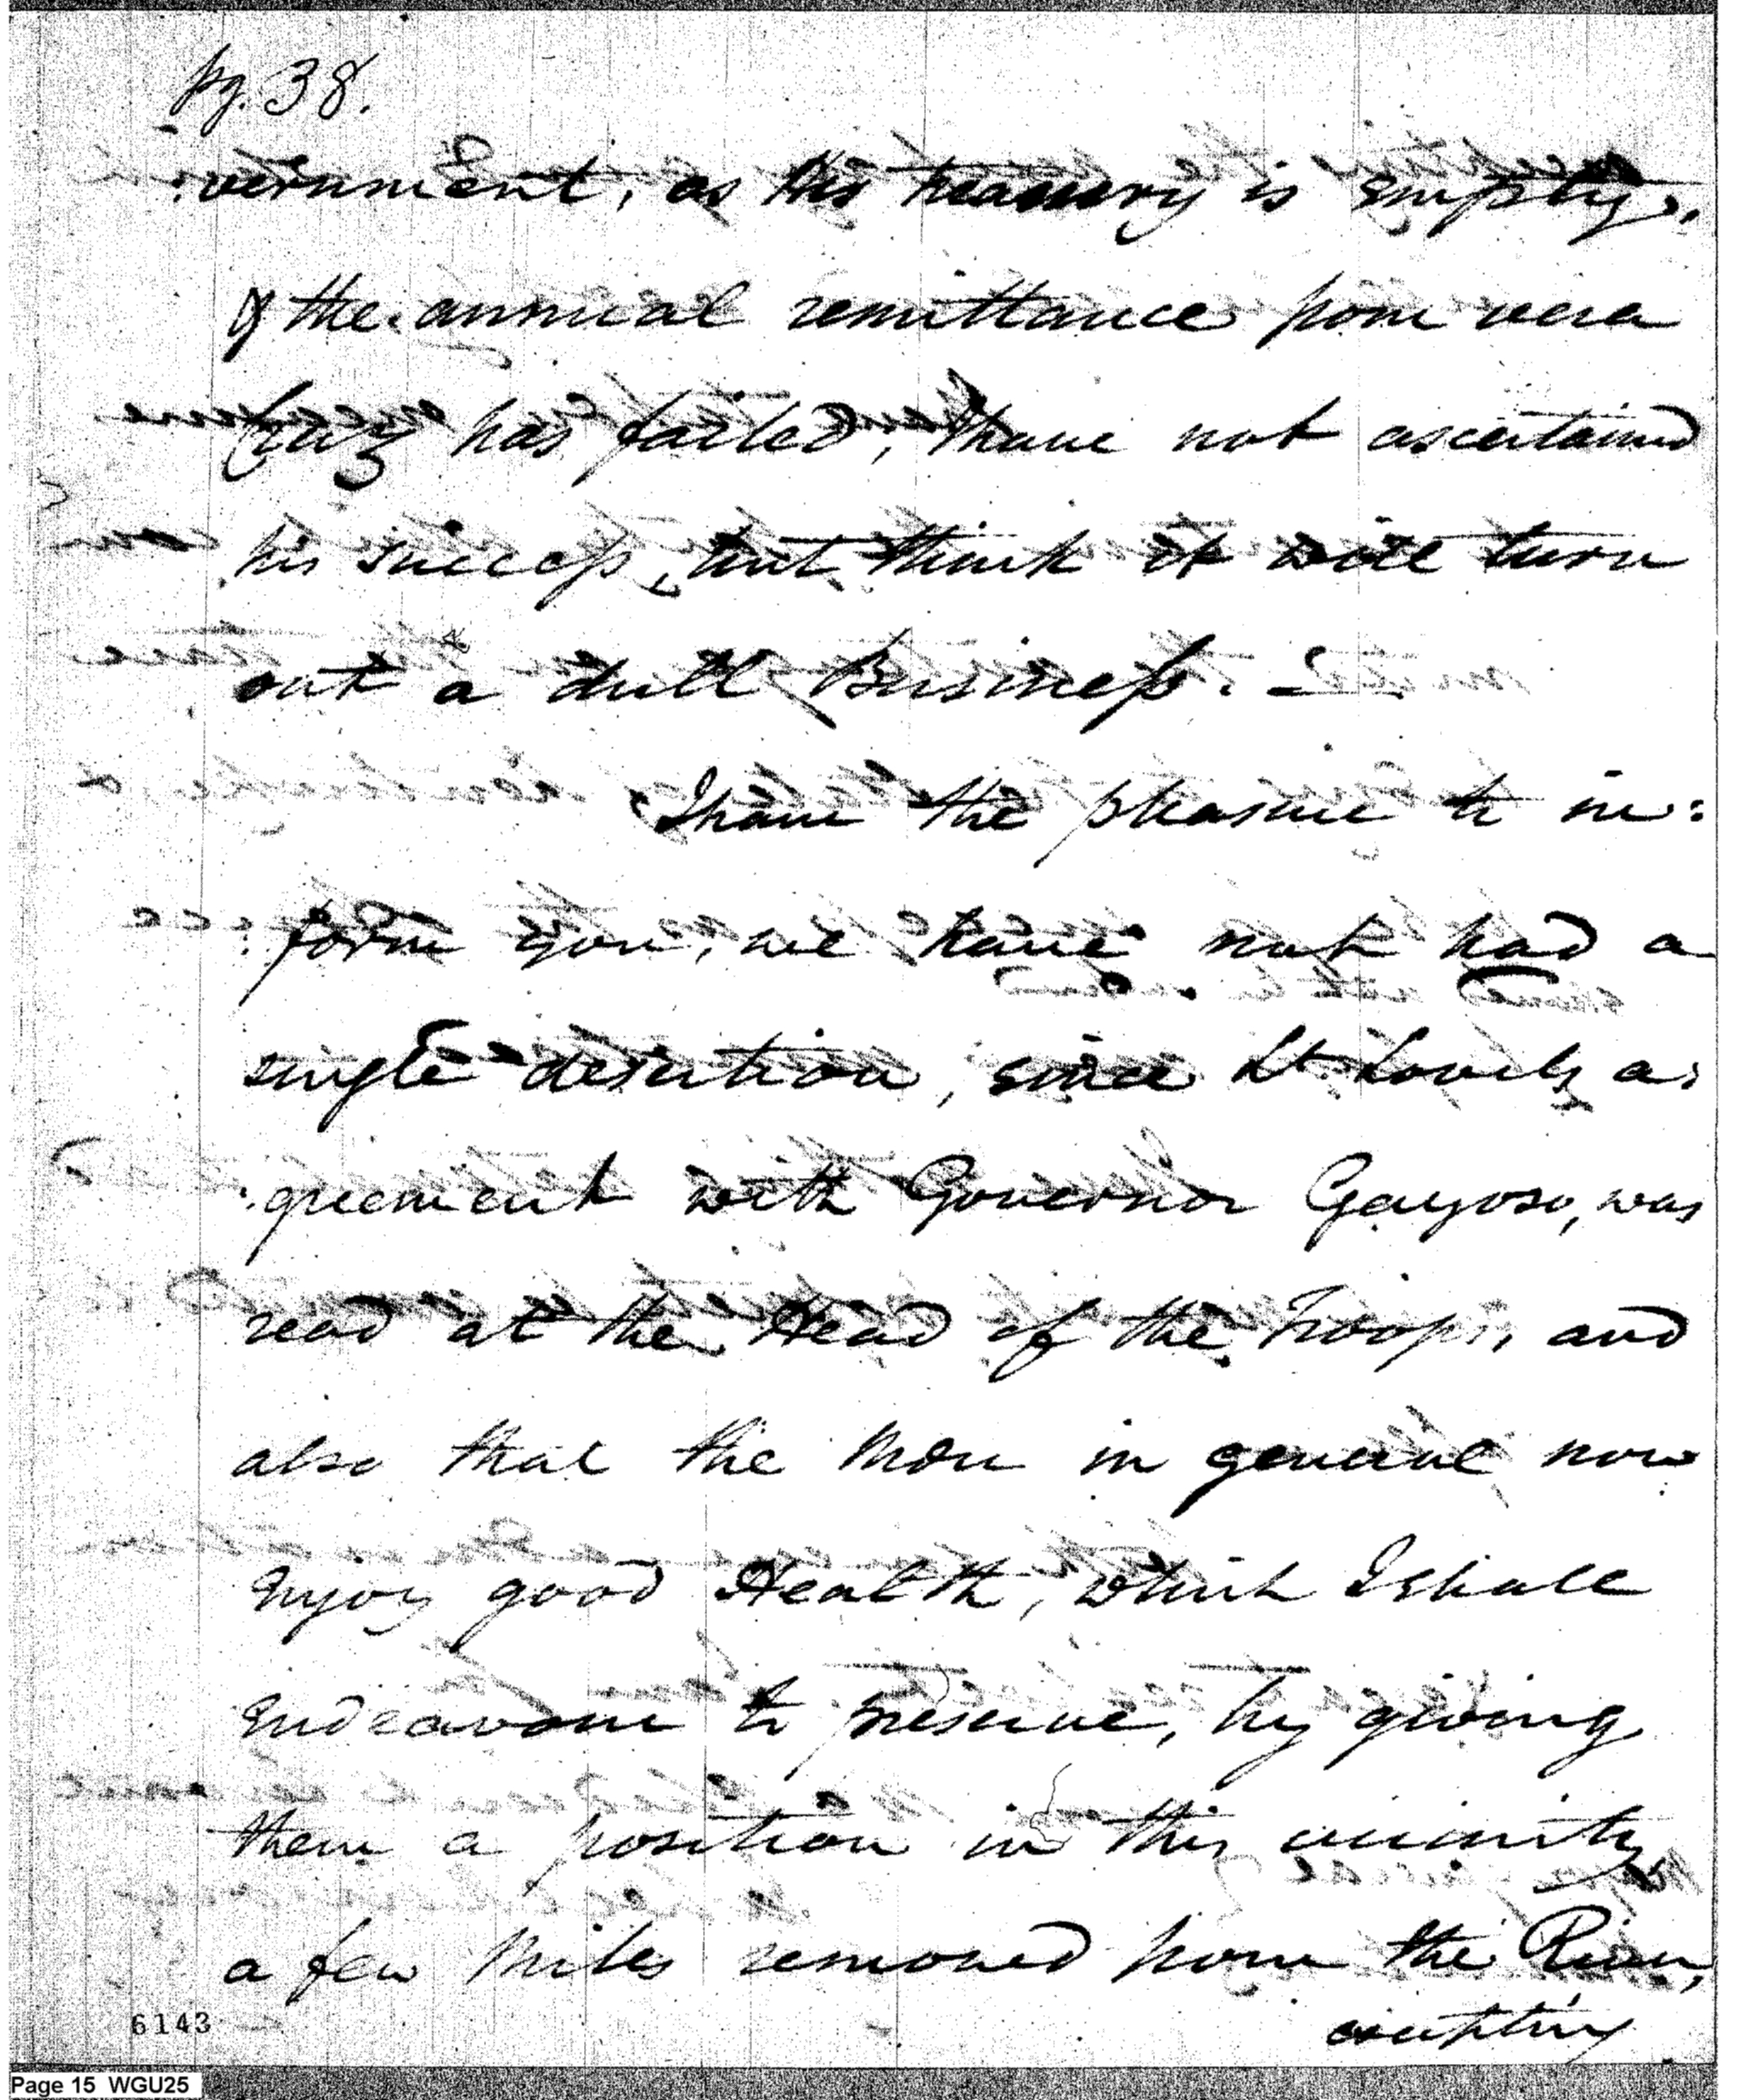 pg. 38.
:vernment, as his treasury is empty,
& the annual remittance from vera
Cruz has failed, I have not ascertained
his success, but think it will turn
out a dull Business. —
I have the pleasure to in:
:form you, we have not had a
single desertion, since Lt Lovely a:
:greement with Governor Gayoso, was
read at the Head of the Troops, and
also that the Men in general now
enjoy good Health, which I shall
endeavour to preserve, by giving
them a position in this vicinity
a few Miles removed from the River,
6143
Page 15 WGU25